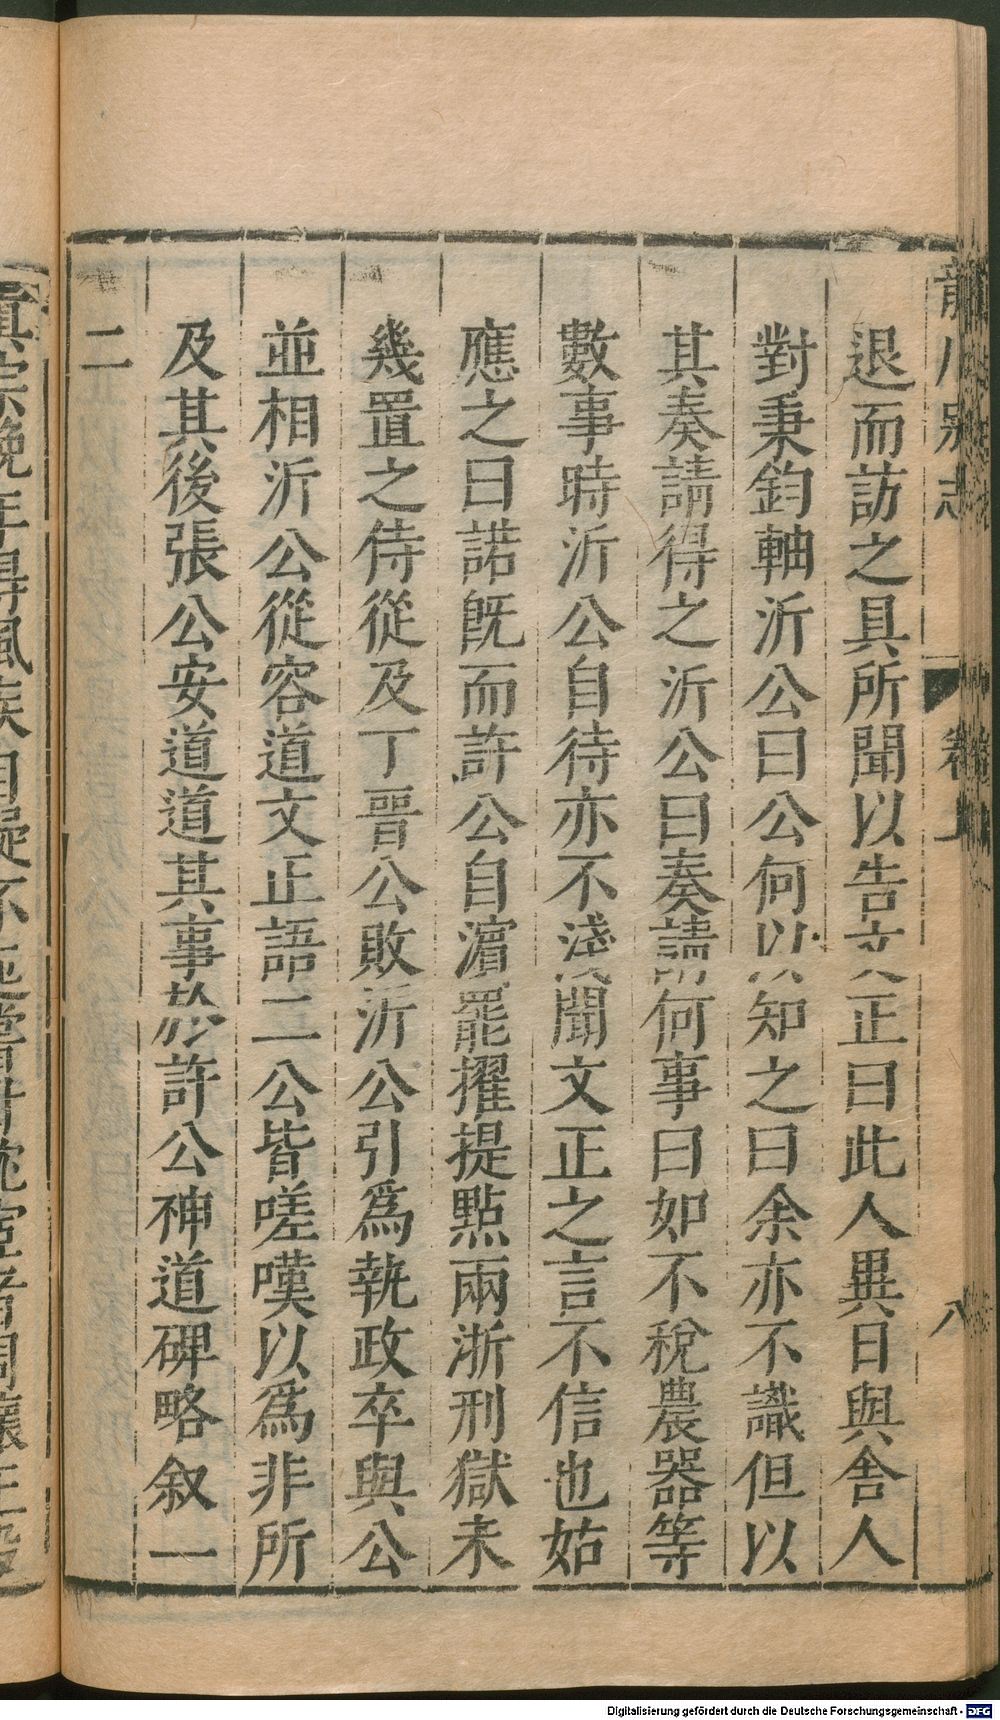 龍川別志 卷上 八
退而訪之具所聞以告文正曰此人異日與舍人
對秉鈞軸沂公曰公何以知之曰余亦不識但以
其奏請得之沂公曰奏請何事曰如不稅農器等
數事時沂公自待亦不淺聞文正之言不信也姑
應之曰諾旣而許公自濵罷擢提點兩浙刑獄未
幾置之侍從及丁晉公敗沂公引爲執政卒與公
並相沂公從容道文正語二公皆嗟嘆以爲非所
及其後張公安道道其事於許公神道碑略叙一
二
眞宗晩年得風疾自疑不起嘗枕宦者周懷正股
Digitalisierung gefördert durch die Deutsche Forschungsgemeinschaft - DFG